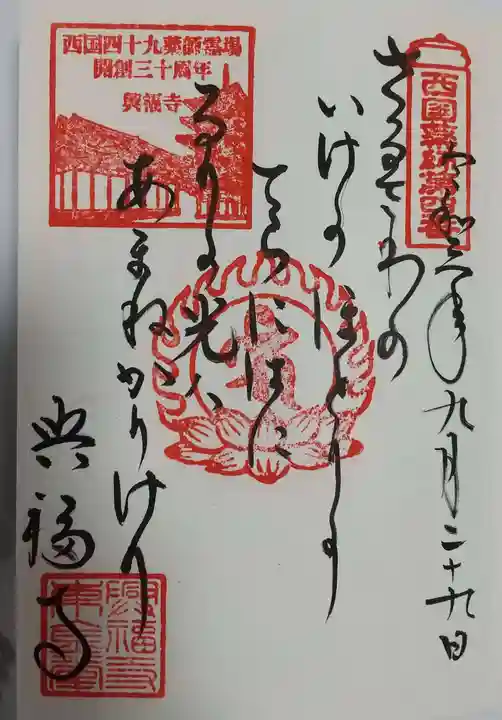 西国薬師第四番
令和元年九月二十九日
さるさわの
いけのほとりの
てらにはに
るりの光は
あまねかりけり
興福寺
西国四十九薬師霊場
開創三十周年
興福寺
興福寺
東金堂